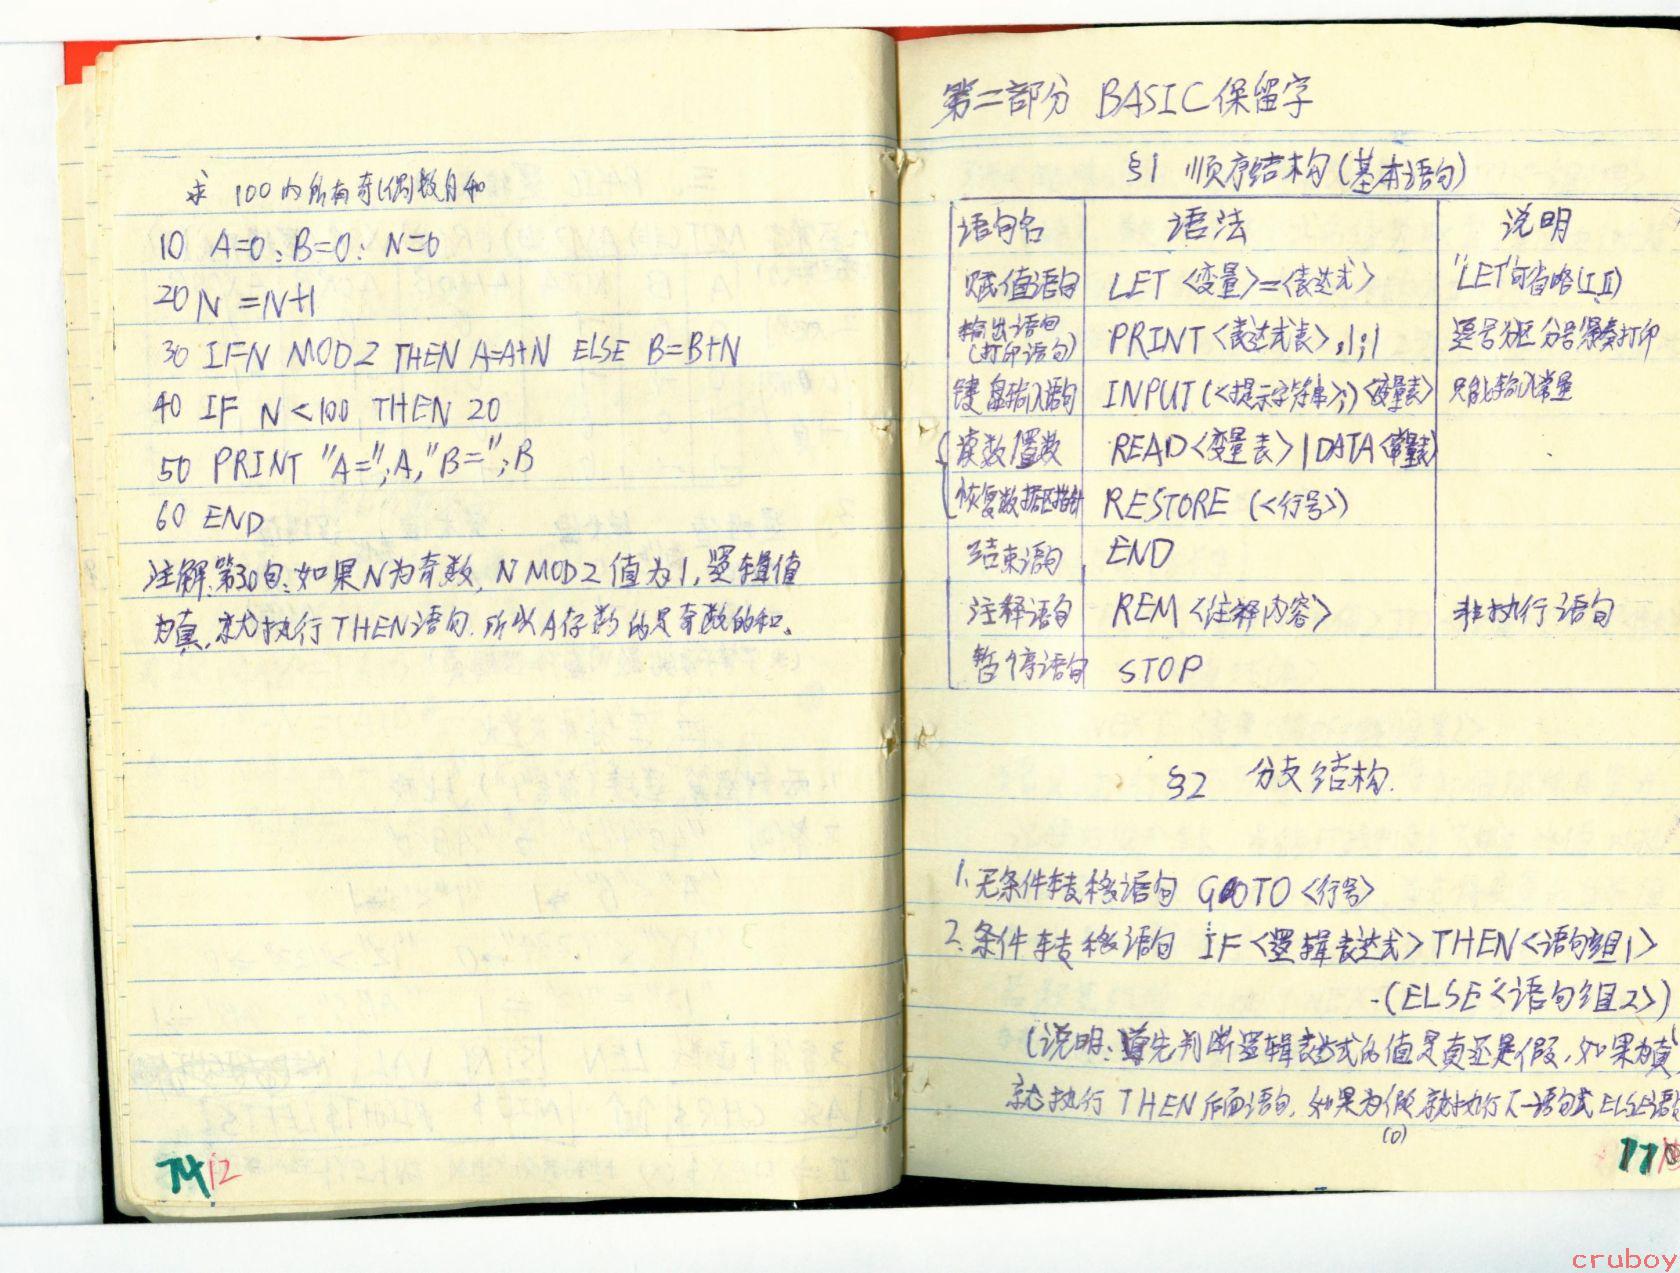 求 100内所有奇(偶)数自和
10 A=0: B=0: N=0
20 N =N+1
30 IF N MOD 2 THEN A=A+N ELSE B=B+N
40 IF N<100 THEN 20
50 PRINT "A=";A,"B=";B
60 END
注解:第30句:如果N为奇数, N MOD 2 值为1, 逻辑值
为真, 就执行THEN语句. 所以A存 的是奇数的和.
74 12
第二部分 BASIC保留字
§1 顺序结构(基本语句)
语句名 语法 说明
赋值语句 LET <变量>=<表达式> "LET"可省略(I,II)
输出语句(打印语句) PRINT<表达式表>,|;| 逗号分区 分号紧凑打印
键盘输入语句 INPUT(<提示字符串>;)<变量表> 只能输入常量
读数/置数 READ<变量表>|DATA<常量表>
恢复数据区指针 RESTORE (<行号>)
结束语句 END
注释语句 REM <注释内容> 非执行语句
暂停语句 STOP
§2 分支结构.
1. 无条件转移语句 GOTO <行号>
2. 条件转移语句 IF<逻辑表达式>THEN<语句组1>
(ELSE<语句组2>)
(说明: 首先判断逻辑表达式的值是真还是假, 如果为真
就执行 THEN后面语句, 如果为假就执行下一语句或ELSE语
(0)
cruboy